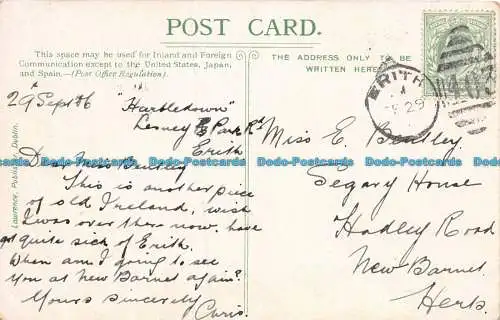 POST CARD.
This space may be used for Inland and Foreign
Communication except to the United States, Japan,
and Spain.—(Post Office Regulation).
THE ADDRESS ONLY TO BE
WRITTEN HERE
ERITH
29
29 Sept 06
"Harbledown"
Lesney Park Rd
Erith
Dear Miss Bentley
This is another piece
of old Ireland, wish
I was over there now, have
got quite sick of Erith.
When am I going to see
you at New Barnet again?
Yours Sincerely
Chris.
Miss E. Bentley
House
Hadley Road
New Barnet
Herts.
Lawrence, Publisher, Dublin.
Dado-Postcards.com Dado-Postcards.com Dado-Postcards.com Dado-Postcards.com